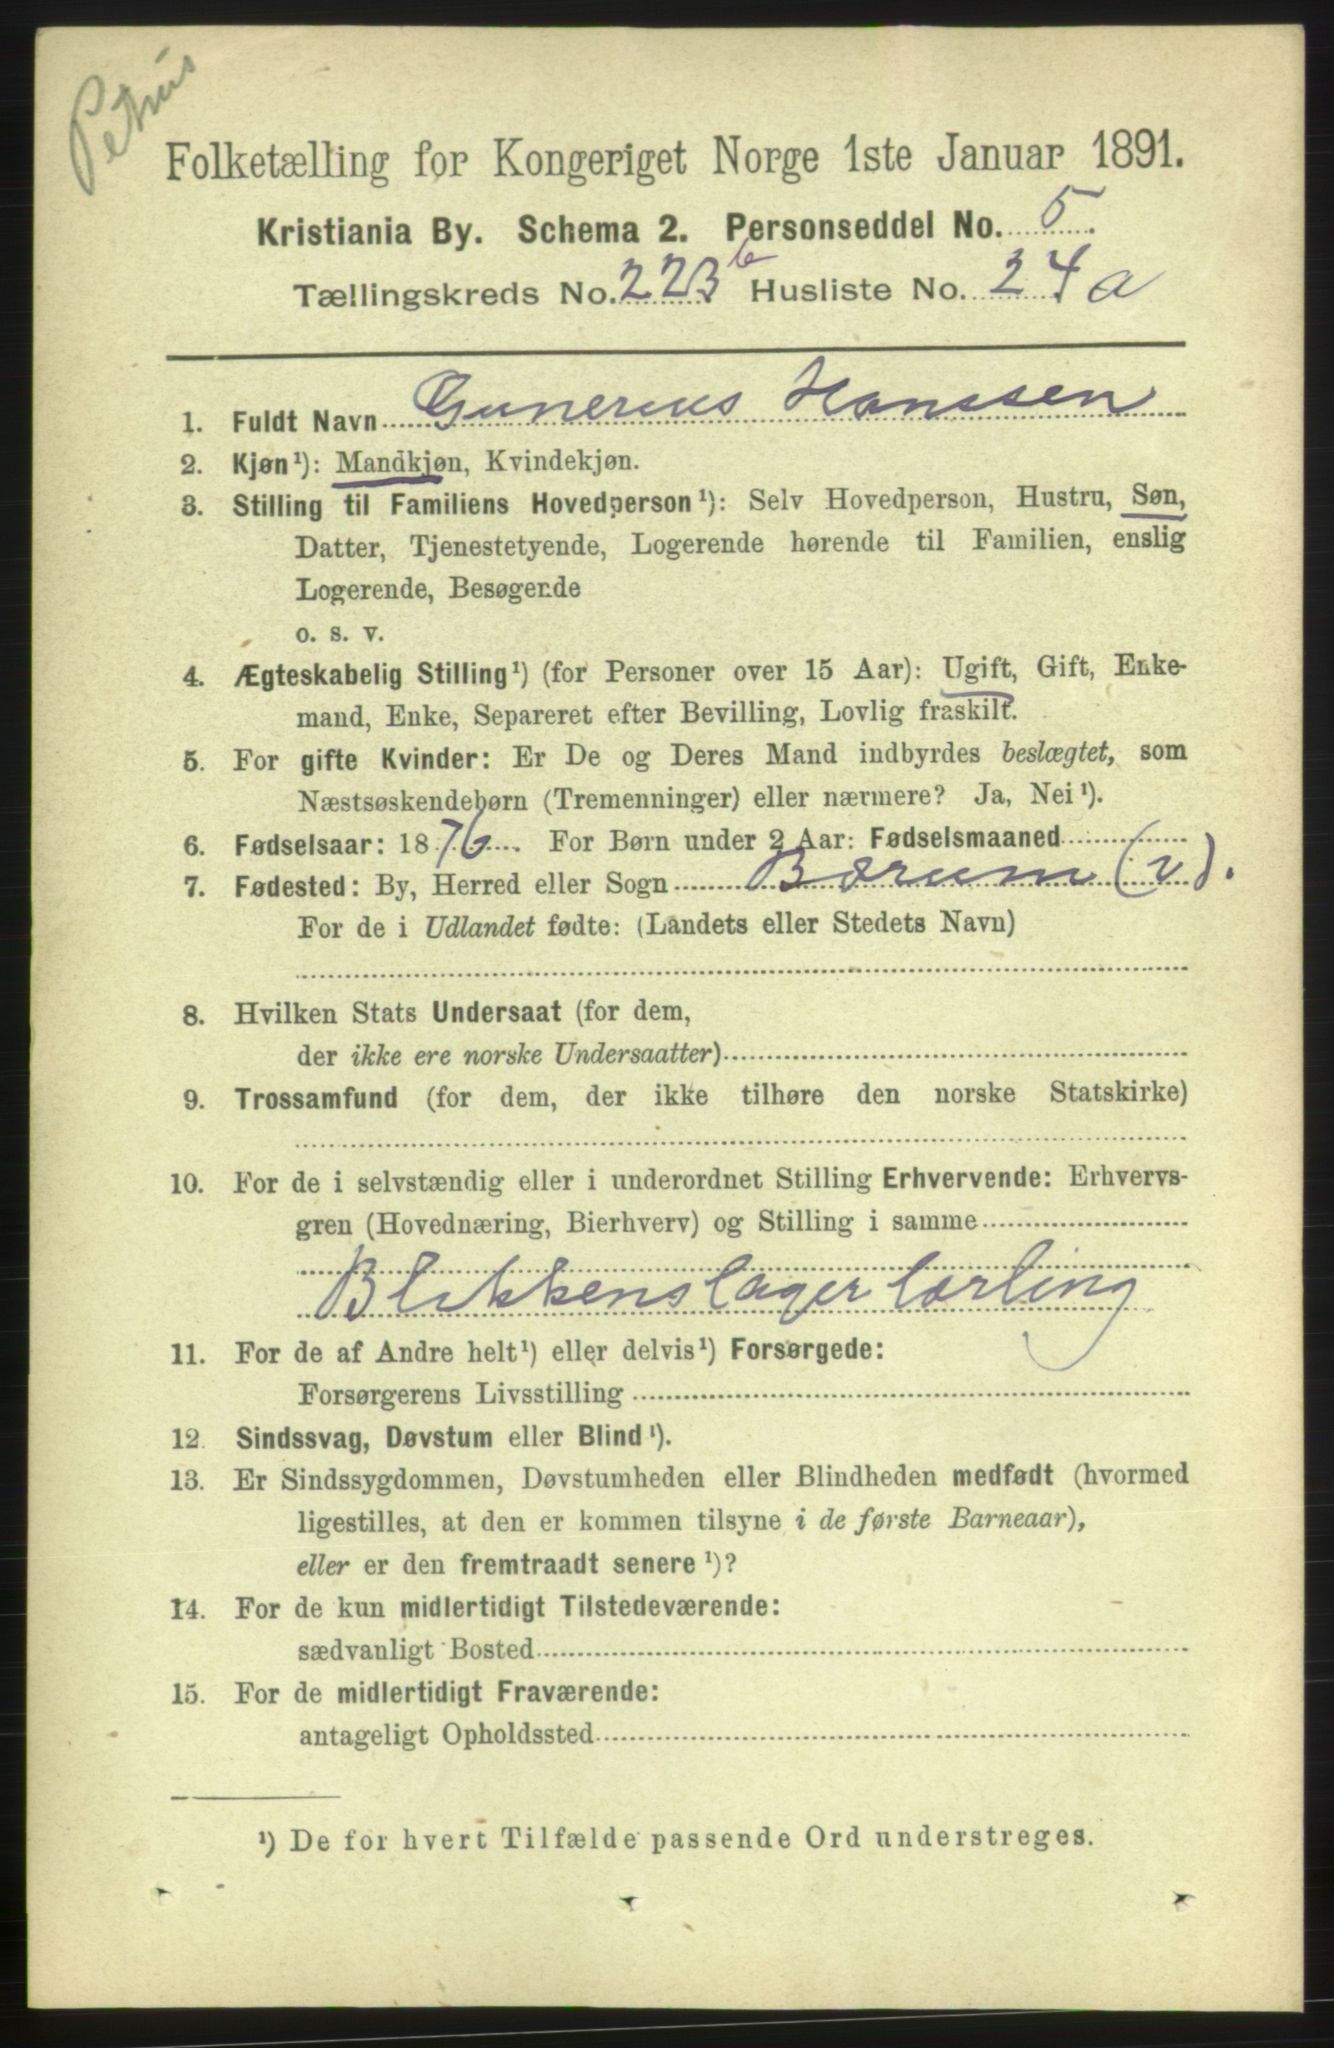 Petrus
Folketælling for Kongeriget Norge 1ste Januar 1891.
Kristiania By. Schema 2. Personseddel No. 5.
Tællingskreds No. 223 b Husliste No. 24 a
1. Fuldt Navn Gunerius Hanssen
2. Kjøn¹): Mandkjøn, Kvindekjøn.
3. Stilling til Familiens Hovedperson¹): Selv Hovedperson, Hustru, Søn,
Datter, Tjenestetyende, Logerende hørende til Familien, enslig
Logerende, Besøgende
o. s. v.
4. Ægteskabelig Stilling¹) (for Personer over 15 Aar): Ugift, Gift, Enke-
mand, Enke, Separeret efter Bevilling, Lovlig fraskilt.
5. For gifte Kvinder: Er De og Deres Mand indbyrdes beslægtet, som
Næstsøskendebørn (Tremenninger) eller nærmere? Ja, Nei¹).
6. Fødselsaar: 1876. For Børn under 2 Aar: Fødselsmaaned
7. Fødested: By, Herred eller Sogn Bærum (v).
For de i Udlandet fødte: (Landets eller Stedets Navn)
8. Hvilken Stats Undersaat (for dem,
der ikke ere norske Undersaatter)
9. Trossamfund (for dem, der ikke tilhøre den norske Statskirke)
10. For de i selvstændig eller i underordnet Stilling Erhvervende: Erhvervs-
gren (Hovednæring, Bierhverv) og Stilling i samme
Blikkenslagerlærling
11. For de af Andre helt¹) eller delvis¹) Forsørgede:
Forsørgerens Livsstilling
12. Sindssvag, Døvstum eller Blind¹).
13. Er Sindssygdommen, Døvstumheden eller Blindheden medfødt (hvormed
ligestilles, at den er kommen tilsyne i de første Barneaar),
eller er den fremtraadt senere¹)?
14. For de kun midlertidigt Tilstedeværende:
sædvanligt Bosted
15. For de midlertidigt Fraværende:
antageligt Opholdssted
¹) De for hvert Tilfælde passende Ord understreges.